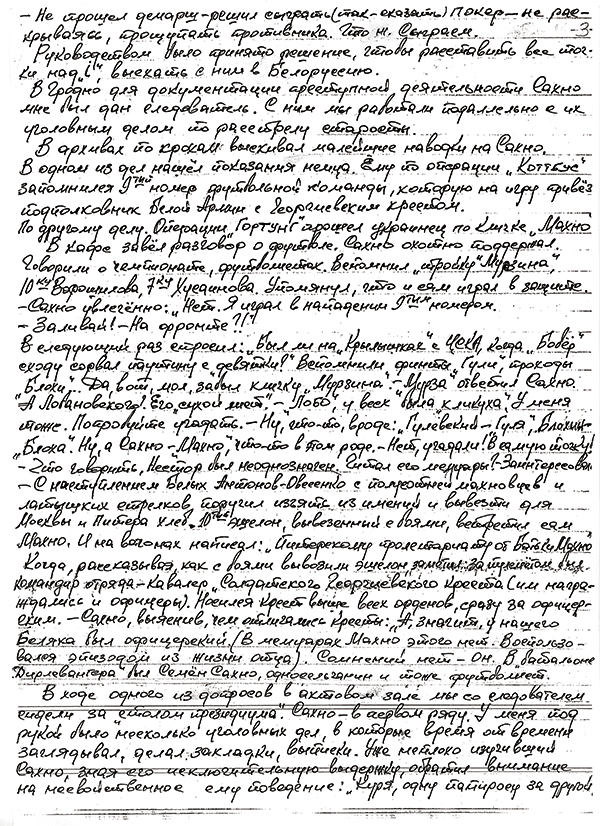 – Не прошел демарш – решил сыграть (так-сказать) Покер – не рас-
крываясь, прощупать противника. Что ж. Сыграем.
-3-
Руководством было принято решение, чтобы расставить все точ-
ки над "i" выехать с ним в Белоруссию.
В Гродно для документации преступной деятельности Сахно
мне был дан следователь. С ним мы работали параллельно с их
уголовным делом по расстрелу старосты.
В архивах по крохам выискивал малейшие наводки на Сахно.
В одном из дел нашёл показания немца. Ему по операции "Коттбус"
запомнился 9тый номер футбольной команды, которую на игру привёз
подполковник Белой Армии с Георгиевским крестом.
По другому делу. Операции "Гортунг" прошел украинец по кличке "Махно"
В кафе завёл разговор о футболе. Сахно охотно поддержал.
Говорили о чемпионате, футболистах. Вспомнил "тройку" "Мурзина",
10ку Ворошилова, 7ку Хусаинова. Упомянул, что и сам играл в защите.
– Сахно увлечённо: "Нет. Я играл в нападении 9тым номером.
– Заливай! – На фронте?!"
В следующий раз спросил: "Был ли на "Крылышках" с ЦСКА, когда "Бобёр"
сходу сорвал паутину с "девятки?" Вспомнили, финты "Гули", проходы
"Блохи". Да, вот, мол, забыл кличку, Мурзина. – Мурза ответил Сахно.
"А Лобановского? Его "сухой лист". – "Лобо", у всех "была кликуха". У меня
тоже. Попробуйте угадать. – Ну, что-то, вроде: "Гулевский – Гуля", "Блохин –
"Блоха". Ну, а Сахно – Махно", что-то в том роде. – Нет, угадали! В самую точку!
– Что говорить, Нестор был неоднозначен. Читал его мемуары? – Заинтересовал.
– С наступлением Белых Антонов-Овсеенко с полусотней махновцев и
латышских стрелков, поручил изъять из имений и вывезти для
Москвы и Питера хлеб. 10тый эшелон, вывезенный с боями, встретил сам
Махно. И на вагонах написал: "Питерскому пролетариату от Батьки Махно"
Когда, рассказывая, как с боями вывозили эшелон заметил: За третьим был
командир отряда – кавалер "Солдатского Георгиевского Креста (им награ-
ждались и офицеры). Носился Крест выше всех орденов, сразу за офицер-
ским. – Сахно, выяснив, чем отличались кресты: "А, значит, у нашего
Беляка был офицерский. (В мемуарах Махно этого нет. Воспользо-
вался эпизодом из жизни отца). Сомнений нет – Он. В батальоне
Дирлевангера был Семён Сахно, односельчанин и тоже футболист.
В ходе одного из допросов в актовом зале мы со следователем
сидели за "столом президиума". Сахно – в первом ряду. У меня под
рукой было несколько уголовных дел, в которые время от времени
заглядывал, делал закладки, выписки. Уже неплохо изучивший
Сахно, зная его исключительную выдержку, обратил внимание
на несвойственное ему поведение: "Куря, одну папиросу за другой,